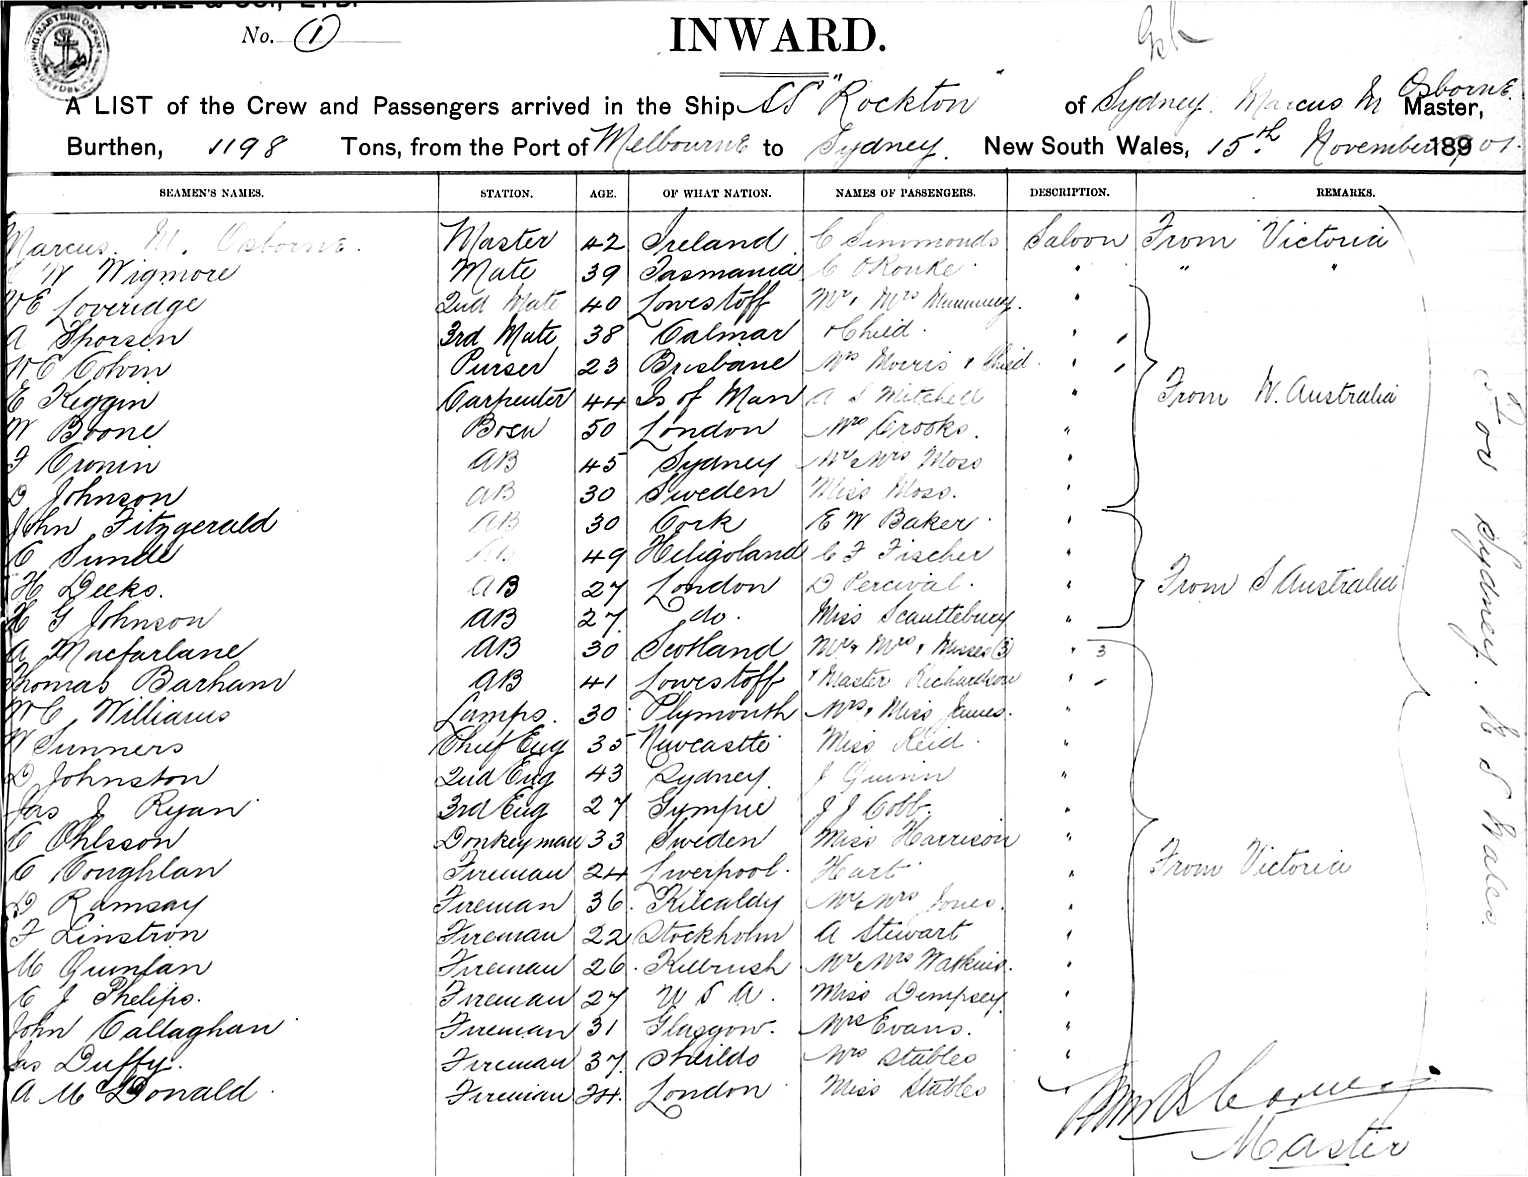 No. (1)
INWARD.
A LIST of the Crew and Passengers arrived in the Ship SS "Rockton" of Sydney. Marcus M Osborne Master,
Burthen, 1198 Tons, from the Port of Melbourne to Sydney. New South Wales, 15th November 1901.
SEAMEN'S NAMES. STATION. AGE. OF WHAT NATION. NAMES OF PASSENGERS. DESCRIPTION. REMARKS.
Marcus. M. Osborne. Master 42 Ireland C Simmonds Saloon From Victoria
W Wigmore Mate 39 Tasmania C O'Rouke " " "
WE Loveridge 2nd Mate 40 Lowestoff Mr, Mrs "
A Thorsen 3rd Mate 38 Calmar + Child "
WC Colvin Purser 23 Brisbane Mrs Morris + Child "
E Keggin Carpenter 44 Is of Man A S Mitchell " From W. Australia
W Boone Bosn 50 London Mrs Crooks. "
F Cronin AB 45 Sydney Mr Mrs Moss "
D Johnson AB 30 Sweden Miss Moss. "
John Fitzgerald AB 30 Cork E W Baker "
C Sunde AB 49 Heligoland C F Fischer "
H Deeks. AB 27 London D Percival. " From S Australia
H G Johnson AB 27 do. Miss Scauttebury "
A Macfarlane AB 30 Scotland Mr, Mrs, Misses (3) " 3
Thomas Barham AB 41 Lowestoff + Master Richardson "
WC Williams Lamps. 30 Plymouth Mrs, Miss James. "
W Sunners Chief Eng 35 Newcastle Miss Reid "
D Johnston 2nd Eng 43 Sydney J Quinn "
Jas J Ryan 3rd Eng 27 Gympie J J Cobb. "
C Ohlsson Donkeyman 33 Sweden Miss Harrison "
C Coughlan Fireman 24 Liverpool. Hart " From Victoria
D Ramsay Fireman 36. Kilcaldy Mr Mrs Jones. "
F Linstron Fireman 22 Stockholm A Stewart "
M Quinlan Fireman 26. Kilrush Mr Mrs Watkins. "
C J Phelips. Fireman 27 U S A. Miss Dempsey. "
John Callaghan Fireman 31 Glasgow. Mrs Evans. "
Jas Duffy. Fireman 37. Sheilds Mrs Stables "
A McDonald Fireman 24. London Miss Stables "
For Sydney. N S Wales.
Master